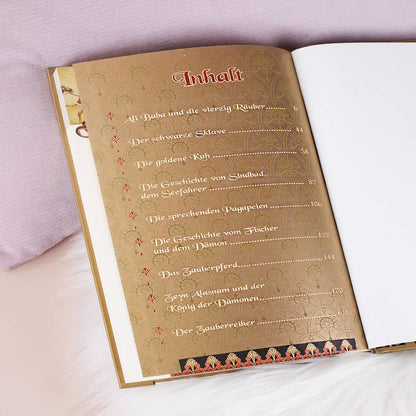 Inhalt
Ali Baba und die vierzig Räuber 6
Der schwarze Sklave 44
Die goldene Kuh 58
Die Geschichte von Sindbad,
dem Seefahrer 82
Die sprechenden Papageien 106
Die Geschichte vom Fischer
und dem Dämon 122
Das Zauberpferd 144
Zeyn Alasnam und der
König der Dämonen 170
Der Zauberreiher